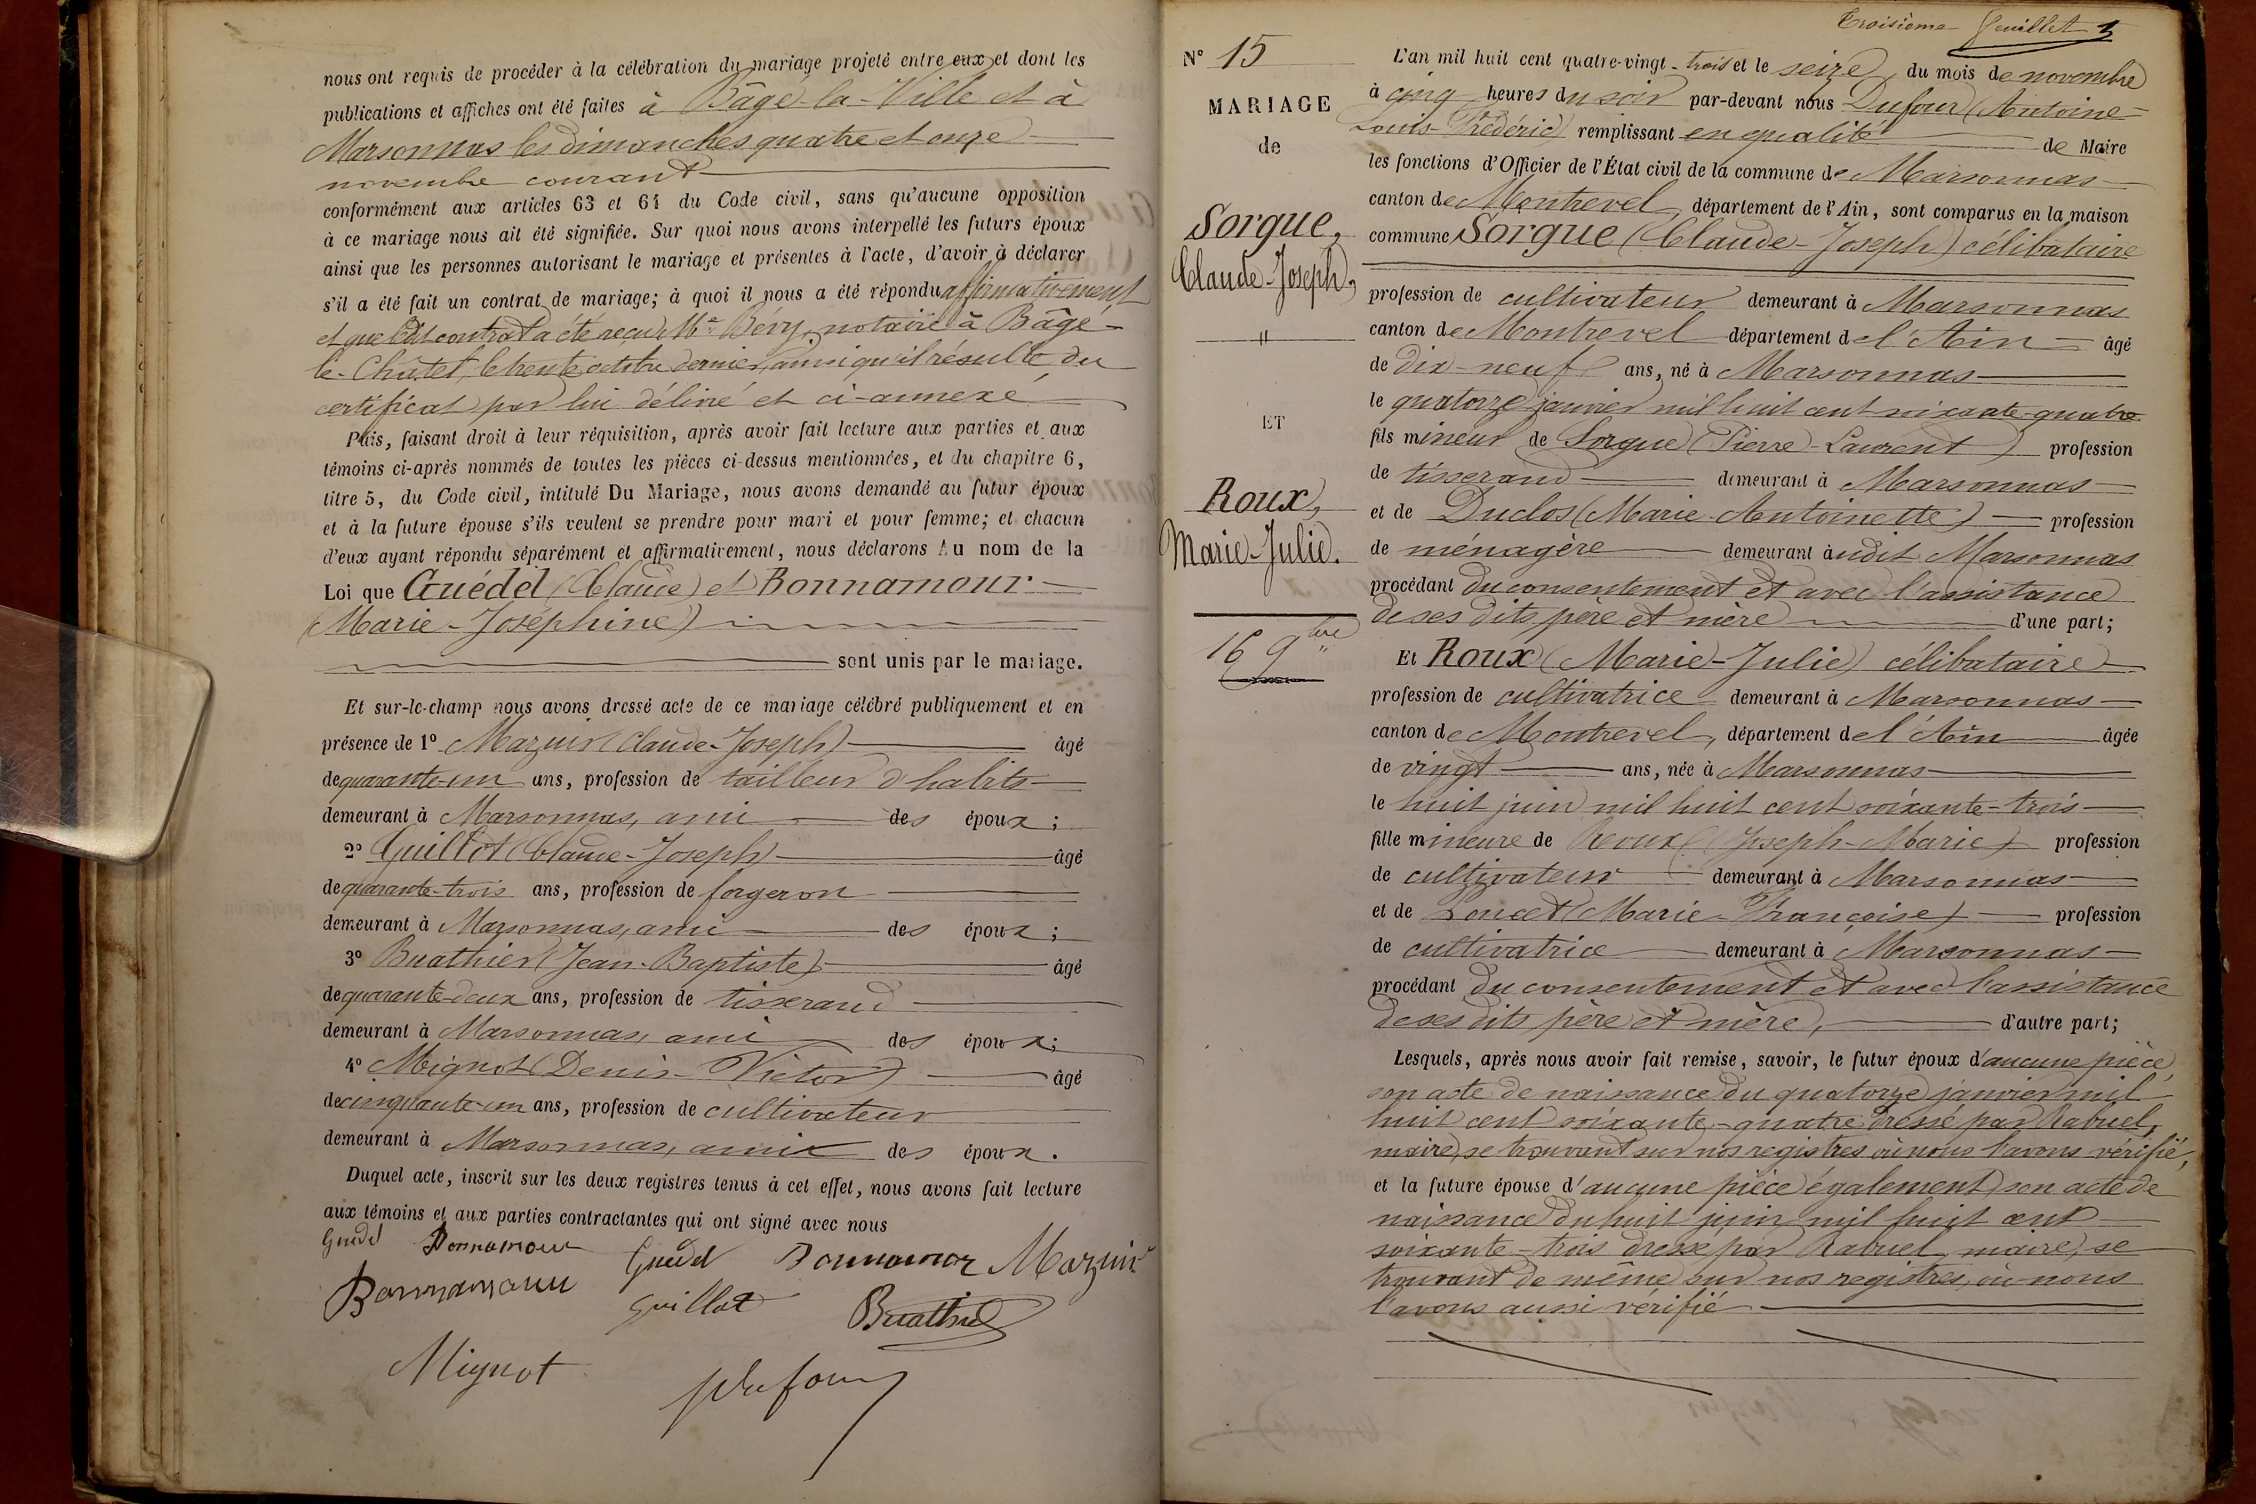 nous ont requis de procéder à la célébration du mariage projeté entre eux et dont les
publications et affiches ont été faites à Bâgé-la-Ville et à
Marsonnas les dimanches quatre et onze
novembre courant
conformément aux articles 63 et 64 du Code civil, sans qu'aucune opposition
à ce mariage nous ait été signifiée. Sur quoi nous avons interpellé les futurs époux
ainsi que les personnes autorisant le mariage et présentes à l'acte, d'avoir à déclarer
s'il a été fait un contrat de mariage; à quoi il nous a été répondu affirmativement
et que ledit contrat a été reçu Me Béry, notaire à Bâgé-
le-Châtel, le trente octobre dernier, ainsi qu'il résulte du
certificat par lui délivré et ci-annexé
Puis, faisant droit à leur réquisition, après avoir fait lecture aux parties et aux
témoins ci-après nommés de toutes les pièces ci-dessus mentionnées, et du chapitre 6,
titre 5, du Code civil, intitulé Du Mariage, nous avons demandé au futur époux
et à la future épouse s'ils veulent se prendre pour mari et pour femme; et chacun
d'eux ayant répondu séparément et affirmativement, nous déclarons Au nom de la
Loi que Guédel (Claude) et Bonnamour
(Marie-Joséphine)
sont unis par le mariage.
Et sur-le-champ nous avons dressé acte de ce mariage célébré publiquement et en
présence de 1° Mazuir (Claude-Joseph) âgé
de quarante-un ans, profession de tailleur d'habits
demeurant à Marsonnas, ami des époux;
2° Guillot (Claude-Joseph) âgé
de quarante-trois ans, profession de forgeron
demeurant à Marsonnas, ami des époux;
3° Buathier (Jean-Baptiste) âgé
de quarante-deux ans, profession de tisserand
demeurant à Marsonnas, ami des époux;
4° Mignot (Denis-Victor) âgé
de cinquante-un ans, profession de cultivateur
demeurant à Marsonnas, ami des époux.
Duquel acte, inscrit sur les deux registres tenus à cet effet, nous avons fait lecture
aux témoins et aux parties contractantes qui ont signé avec nous
Guédel Bonnamour Guédel Bonnamour Mazuir
Bonnamour Guillot Buathier
Mignot Dufour
Troisième feuillet 3
N° 15
MARIAGE
de
Sorgue,
Claude-Joseph,
"
ET
Roux,
Marie-Julie.
16 9bre
L'an mil huit cent quatre-vingt-trois et le seize du mois de novembre
à cinq heures du soir par-devant nous Dufour (Antoine-
Louis-Frédéric) remplissant en qualité de Maire
les fonctions d'Officier de l'État civil de la commune de Marsonnas
canton de Montrevel, département de l'Ain, sont comparus en la maison
commune Sorgue (Claude-Joseph) célibataire
profession de cultivateur demeurant à Marsonnas
canton de Montrevel département de l'Ain âgé
de dix-neuf ans, né à Marsonnas
le quatorze janvier mil huit cent soixante-quatre
fils mineur de Sorgue (Pierre-Laurent) profession
de tisserand demeurant à Marsonnas
et de Duclos (Marie-Antoinette) profession
de ménagère demeurant audit Marsonnas
procédant du consentement et avec l'assistance
de ses dits père et mère d'une part;
Et Roux (Marie-Julie) célibataire
profession de cultivatrice demeurant à Marsonnas
canton de Montrevel, département de l'Ain âgée
de vingt ans, née à Marsonnas
le huit juin mil huit cent soixante-trois
fille mineure de Roux (Joseph-Marie) profession
de cultivateur demeurant à Marsonnas
et de (Marie-Françoise) profession
de cultivatrice demeurant à Marsonnas
procédant du consentement et avec l'assistance
de ses dits père et mère, d'autre part;
Lesquels, après nous avoir fait remise, savoir, le futur époux d'aucune pièce,
son acte de naissance du quatorze janvier mil
huit cent soixante-quatre dressé par Rabuel,
maire, se trouvant sur nos registres où nous l'avons vérifié,
et la future épouse d'aucune pièce également, son acte de
naissance du huit juin mil huit cent
soixante-trois dressé par Rabuel, maire, se
trouvant de même sur nos registres, où nous
l'avons aussi vérifié